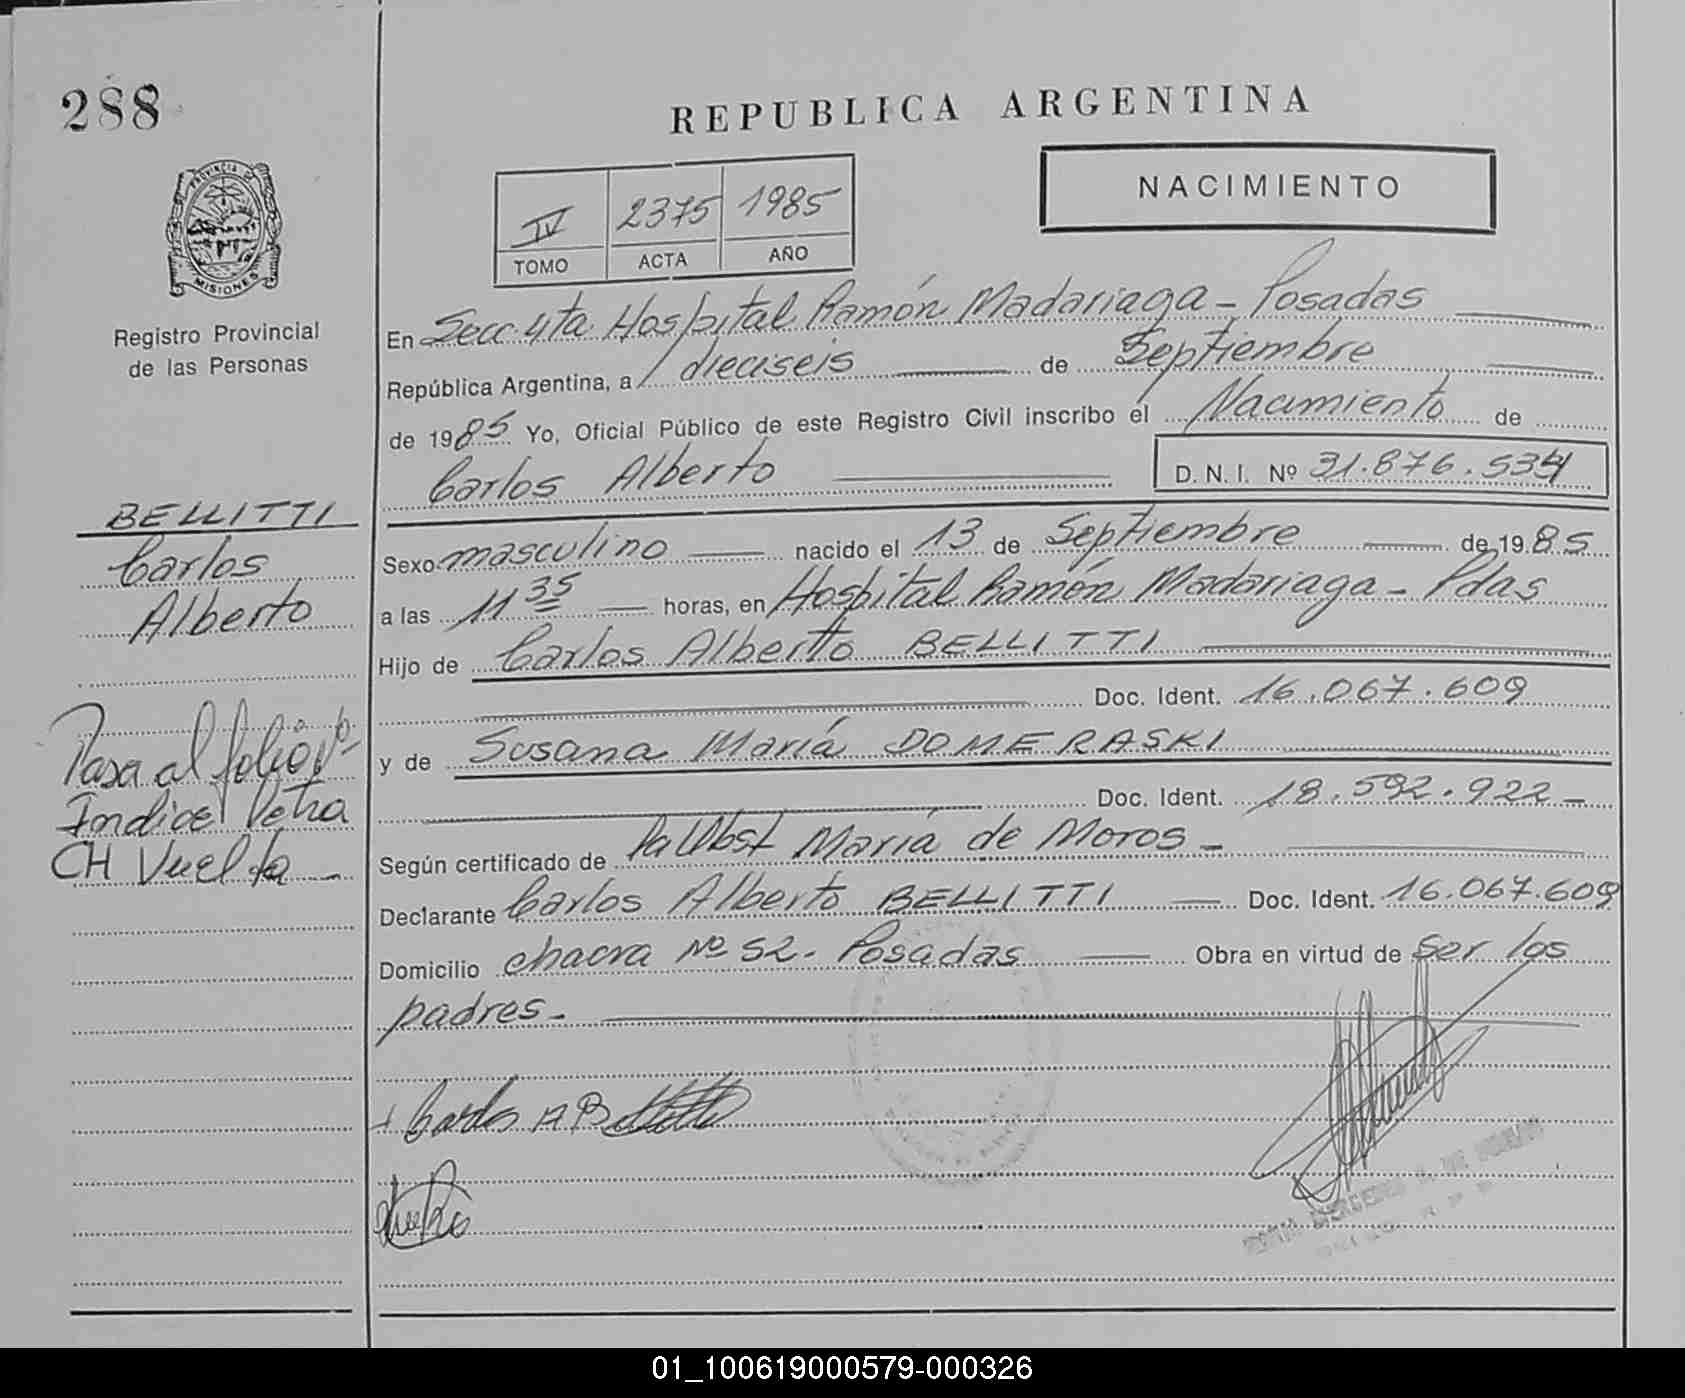 288
REPUBLICA ARGENTINA
NACIMIENTO
IV 2375 1985
TOMO ACTA AÑO
PROVINCIA DE
MISIONES
Registro Provincial
de las Personas
En Secc 4ta Hospital Ramón Madariaga - Posadas
República Argentina, a dieciseis de Septiembre
de 1985 Yo, Oficial Público de este Registro Civil inscribo el Nacimiento de
Carlos Alberto D.N.I. Nº 31.876.534
BELLITTI
Carlos
Alberto
Sexo masculino nacido el 13 de Septiembre de 1985
a las 11 35 horas, en Hospital Ramón Madariaga - Pdas
Hijo de Carlos Alberto BELLITTI
Doc. Ident. 16.067.609
y de Susana María DOMERASKI
Doc. Ident. 18.592.922-
Pasa al folio
Indice letra
CH Vuelta -
Según certificado de la Obst María de Moros -
Declarante Carlos Alberto BELLITTI Doc. Ident. 16.067.609
Domicilio chacra Nº 52 - Posadas Obra en virtud de ser los
padres -
Carlos A B
01_100619000579-000326